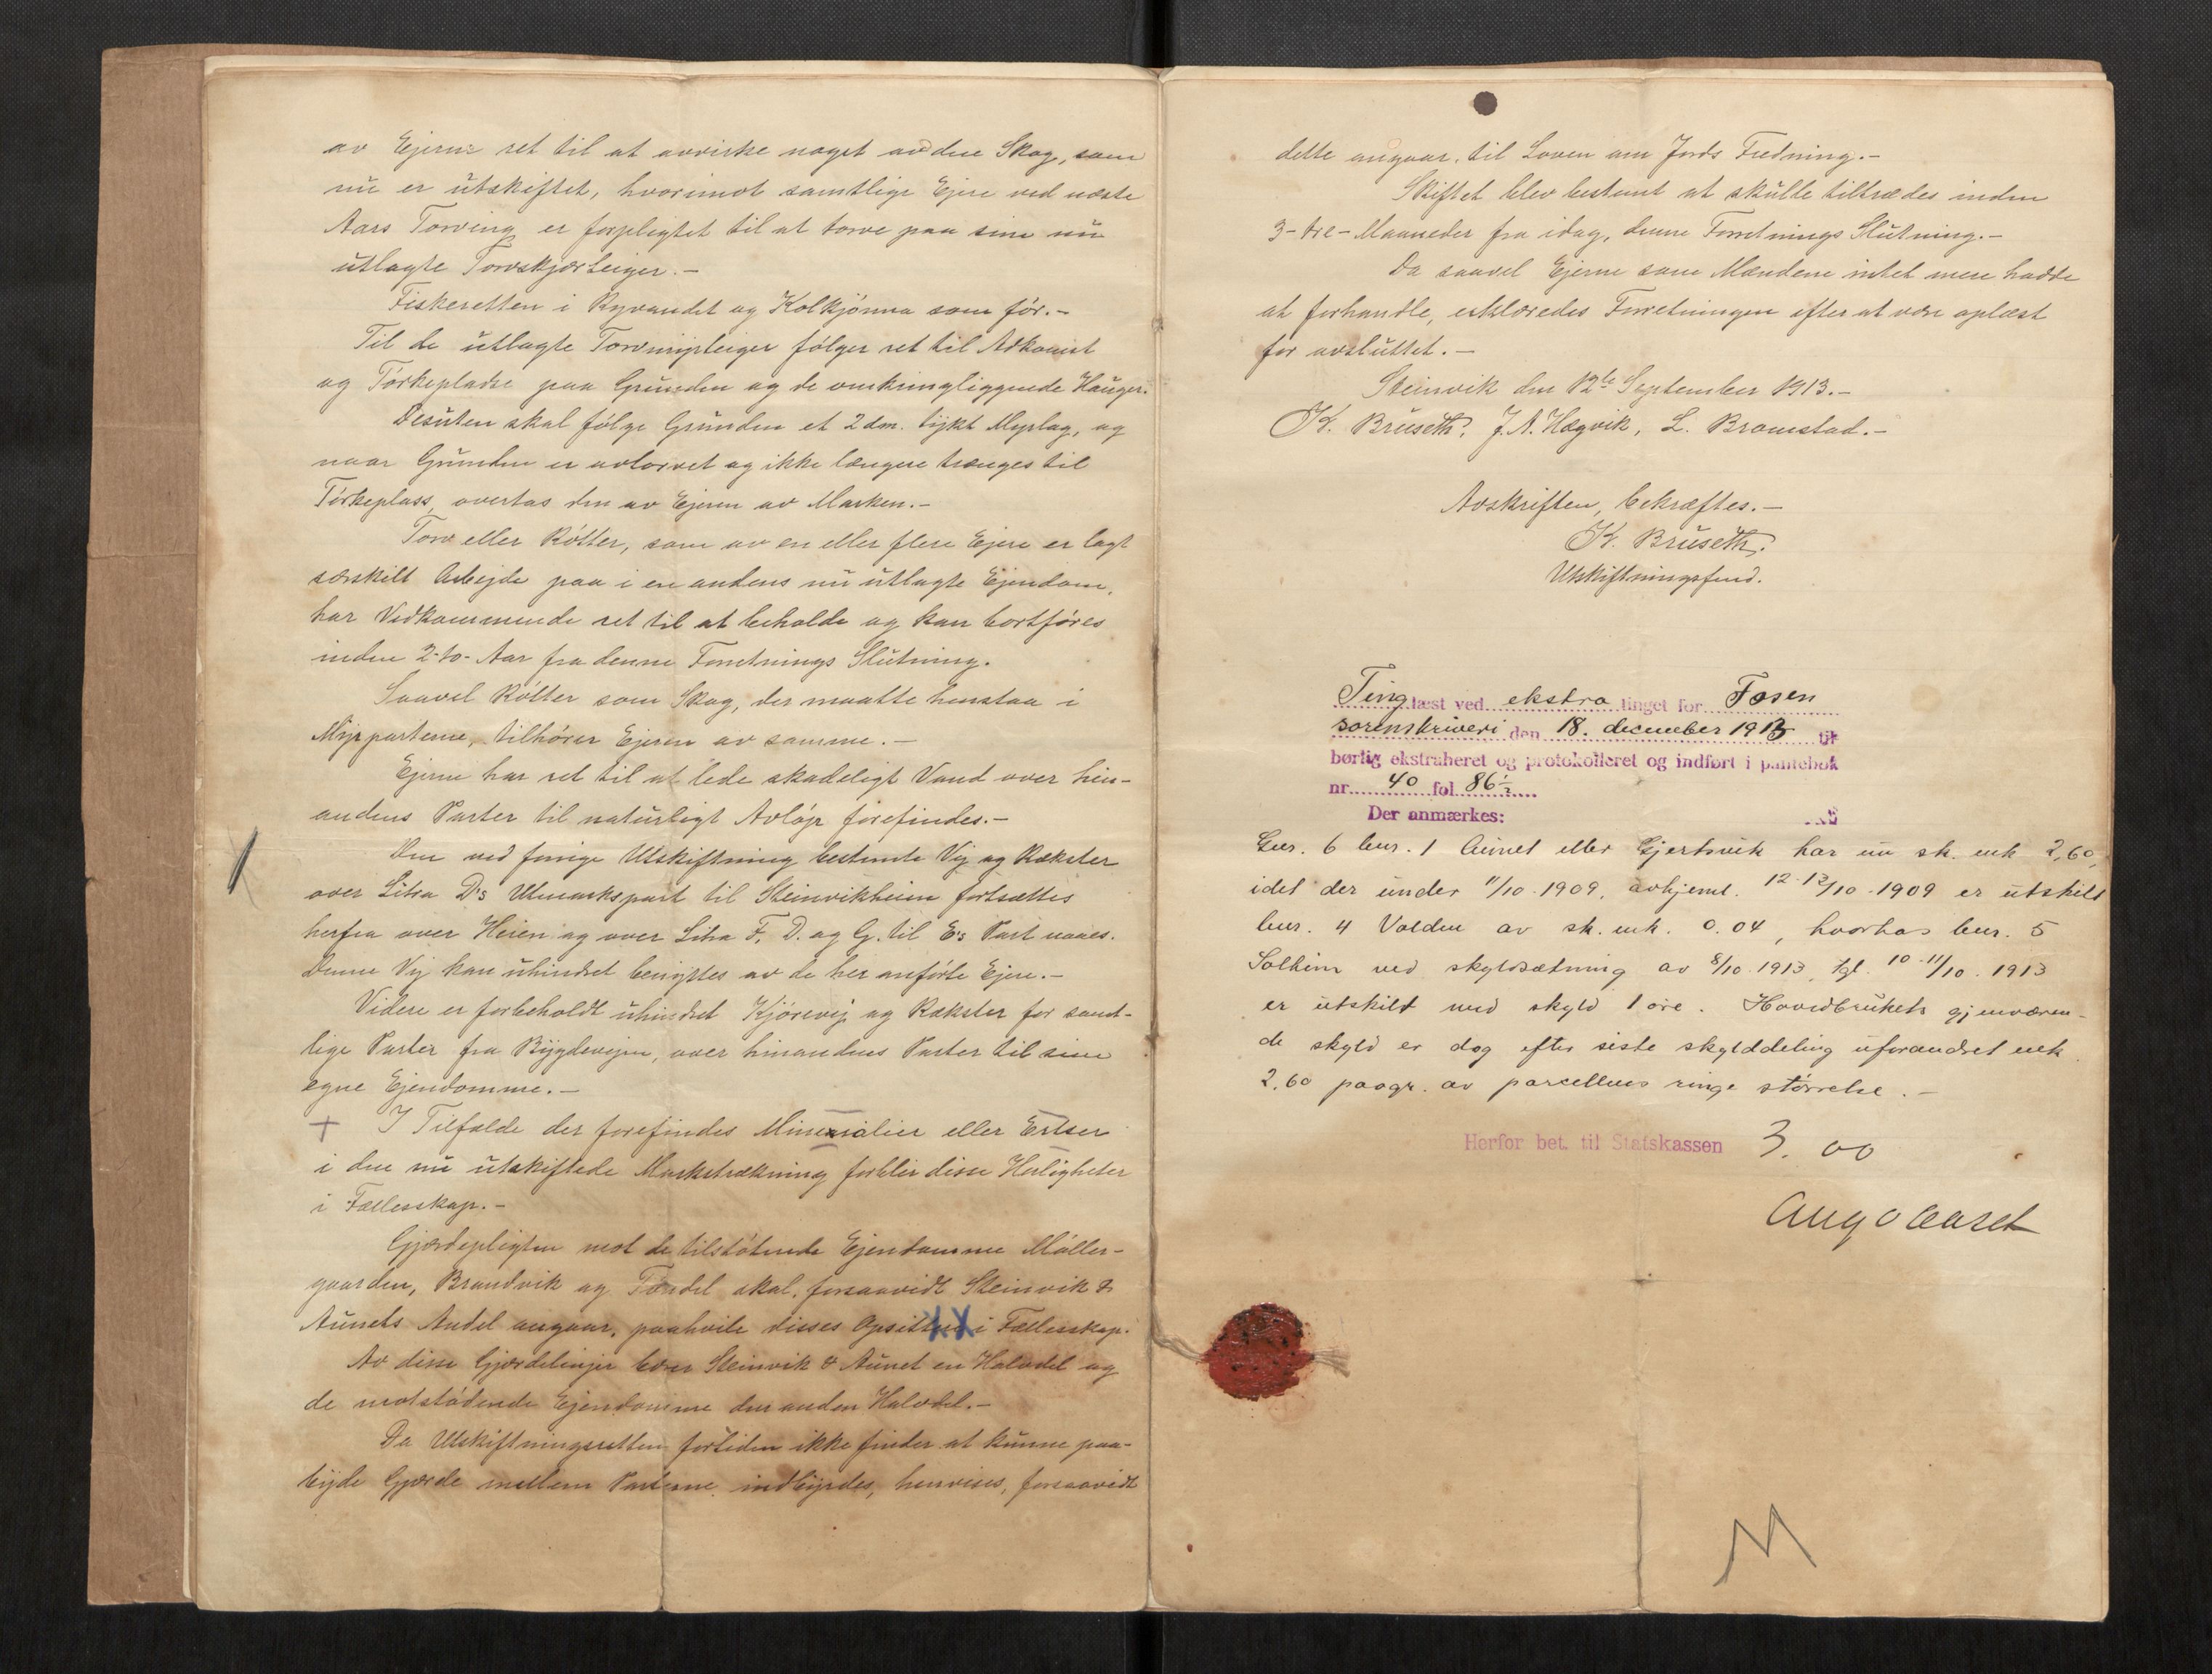 av Ejerne ret til at avvirke noget av den Skog, som
nu er utskiftet, hvorimot samtlige Ejere ved næste
Aars Torving er forpligtet til at torve paa sine nu
utlagte Torvskjærteiger.-
Fiskeretten i Ryvandet og Kolkjönna som för.-
Til de utlagte Torvmyrteiger følger ret til Adkomst
og Törkepladse paa Grunden og de omkringliggende Hauger.
Desuten skal følge Grunden et 2 dm. tykt Myrlag, og
naar Grunden er avtorvet og ikke længere trænges til
Törkeplass, overtas den av Ejeren av Marken.-
Torv eller Rötter, som av en eller flere Ejere er lagt
særskilt Arbejde paa i en andens nu utlagte Ejendom,
har Vedkommende ret til at beholde og kan bortföres
inden 2-to- Aar fra denne Forretnings Slutning.
Saavel Rötter som Skog, der maatte henstaa i
Myrparterne, tilhörer Ejeren av samme.-
Ejerne har ret til at lede skadeligt Vand over hin-
andens Parter til naturligt Avlöp forefindes.-
Den ved forrige Utskiftning bestemte Vej og Rækster
over Litra D's Utmarkspart til Steinvikheim fortsættes
herfra over Heien og over Litra F, D. og G. til E's Part naaes.
Denne Vej kan uhindret benyttes av de her anförte Ejere.-
Videre er forbeholdt uhindret Kjörevej og Rækster for samt-
lige Parter fra Bygdevejen, over hinandens Parter til sine
egne Ejendomme.-
+ I Tilfælde der forefindes Mineralier eller Ertser
i den nu utskiftede Markstrækning forblir disse Herligheter
i Fællesskap.-
Gjærdepligten mot de tilstötende Ejendomme Möller-
gaarden, Brandvik og Tondel skal, forsaavidt Steinvik &
Aunets Andel angaar, paahvile disses Opsittere i Fællesskap.
Av disse Gjærdelinjer bærer Steinvik & Aunet en Halvdel og
de motstödende Ejendomme den anden Halvdel.-
Da Utskiftningsretten fortiden ikke finder at kunne paa-
byde Gjærde mellem Parterne indbyrdes, henvises, forsaavidt
dette angaar, til Loven om Jords Fredning.-
Skiftet blev bestemt at skulle tiltrædes inden
3-tre-Maaneder fra idag, denne Forretnings Slutning.-
Da saavel Ejerne som Mændene intet mere hadde
at forhandle, erklæredes Forretningen efter at være oplæst
for avsluttet.-
Steinvik den 12te September 1913.-
K. Bruseth. J.A. Hægvik, L. Bromstad.-
Avskriften bekræftes.-
K. Bruseth.
Utskiftningsformd.
Tinglæst ved ekstra tinget for Fosen
sorenskriveri den 18. december 1913
børlig ekstraheret og protokolleret og indført i pantebok
nr. 40 fol 86 1/2
Der anmærkes:
Gnr. 6 bnr. 1 Aunet eller Gjertsvik har nu sk. mk 2,60,
idet der under 11/10-1909, avhjeml. 12-13/10-1909 er utskilt
bnr. 4 Volden av sk. mk. 0.04, hvorhos bnr. 5
Solheim ved skyldsætning av 8/10.1913, tgl. 10-11/10.1913
er utskilt med skyld 1 øre. Hovedbrukets gjenværen-
de skyld er dog efter siste skylddeling uforandret mk
2.60 paagr. av parcellens ringe størrelse.-
Herfor bet. til Statskassen 3.00